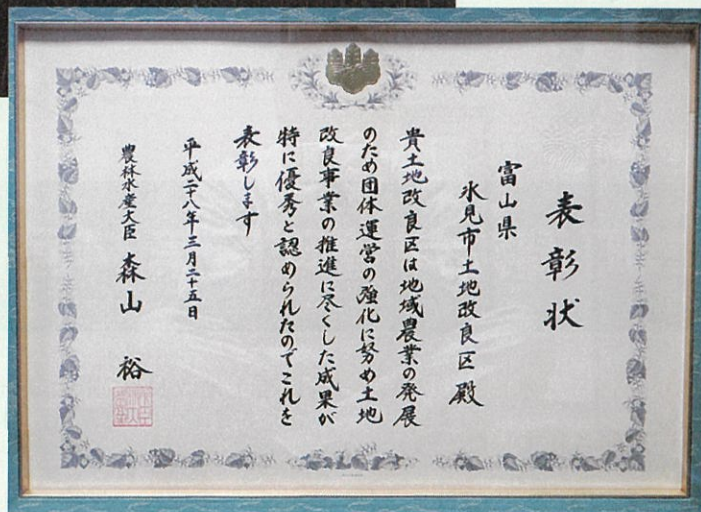 表彰状
富山県
氷見市土地改良区殿
貴土地改良区は地域農業の発展
のため団体運営の強化に努め土地
改良事業の推進に尽くした成果が
特に優秀と認められたのでこれを
表彰します
平成二十八年三月二十五日
農林水産大臣 森山 裕